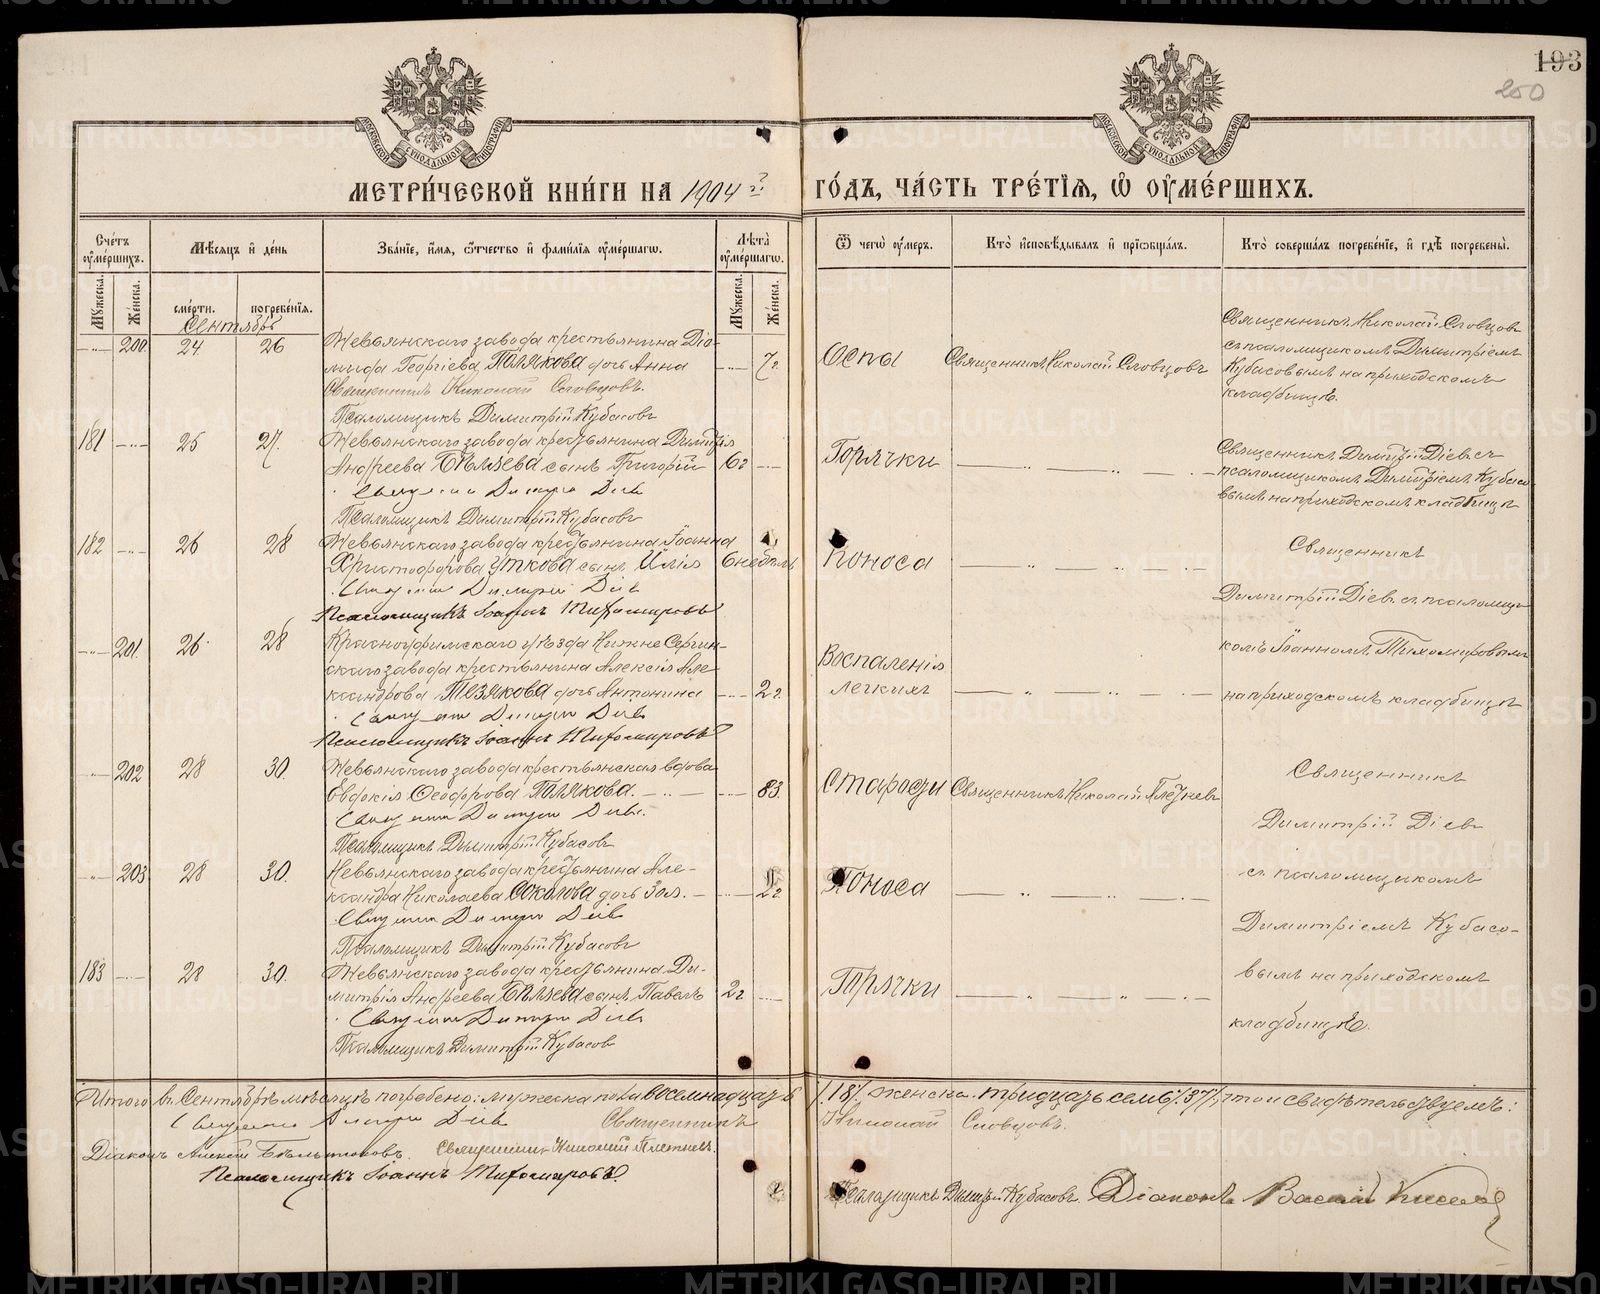 193
200
МОСКОВСКОЙ СѴНОДАЛЬНОЙ ТИПОГРАФІИ
МОСКОВСКОЙ СѴНОДАЛЬНОЙ ТИПОГРАФІИ
МЕТРИ́ЧЕСКОЙ КНИ́ГИ НА 1904 г.
ГО́ДЪ, ЧА́СТЬ ТРЕ́ТІѦ, Ѽ ОУ҆МЕ́РШИХЪ.
Счетъ оумершихъ.
Мѣсѧцъ и день
Званіе, имѧ, ѿчество и фамиліѧ оумершагѡ.
Лѣта оумершагѡ.
Ѿ чегѡ оумеръ.
Кто исповѣдывалъ и пріѡбщалъ.
Кто совершалъ погребеніе, и гдѣ погребены.
Мужеска.
Женска.
смерти.
погребеніѧ.
Мужеска.
Женска.
Сентябрь
200 24 26
Невьянскаго завода крестьянина Діо-
мида Георгіева Полякова дочь Анна
Священникъ Николай Словцовъ.
Псаломщикъ Димитрій Кубасовъ
7 г.
Оспы
Священникъ Николай Словцовъ
Священникъ Николай Словцовъ
съ псаломщикомъ Димитріемъ
Кубасовымъ на приходскомъ
кладбищѣ.
181 25 27.
Невьянскаго завода крестьянина Димитрія
Андреева Бѣляева сынъ Григорій
Священникъ Димитрій Діевъ
Псаломщикъ Димитрій Кубасовъ
6 г
Горячки
Священникъ Димитрій Діевъ съ
псаломщикомъ Димитріемъ Кубасо-
вымъ на приходскомъ кладбищѣ
182 26 28
Невьянскаго завода крестьянина Іоанна
Христофорова Уткова сынъ Илія
Священникъ Димитрій Діевъ
Псаломщикъ Іоаннъ Тихомировъ
6 недѣль
Поноса
Священникъ
Димитрій Діевъ съ псаломщи-
комъ Іоанномъ Тихомировымъ
на приходскомъ кладбищѣ
201 26 28
Красноуфимскаго уѣзда Нижне Сергин-
скаго завода крестьянина Алексія Але-
ксандрова Тезякова дочь Антонина
Священникъ Димитрій Діевъ
Псаломщикъ Іоаннъ Тихомировъ
2 г.
Воспаленія
легкихъ
202 28 30.
Невьянскаго завода крестьянская вдова
Евдокія Ѳеодорова Полякова.
Священникъ Димитрій Діевъ.
Псаломщикъ Димитрій Кубасовъ
83.
Старости
Священникъ Николай Плетневъ
Священникъ
Димитрій Діевъ
съ псаломщикомъ
Димитріемъ Кубасо-
вымъ на приходскомъ
кладбищѣ.
203 28 30.
Невьянскаго завода крестьянина Але-
ксандра Николаева Соколова дочь Зоя.
Священникъ Димитрій Діевъ
Псаломщикъ Димитрій Кубасовъ
2 г.
Поноса
183 28 30.
Невьянскаго завода крестьянина Ди-
митрія Андреева Бѣляева сынъ Павелъ
Священникъ Димитрій Діевъ
Псаломщикъ Димитрій Кубасовъ
2 г
Горячки
Итого въ Сентябрѣ мѣсяцѣ погребено: мужеска пола восемнадцать /18/, женска тридцать семь /37/, что и свидѣтельствуемъ:
Священникъ Димитрій Діевъ Священникъ Николай Словцовъ.
Діаконъ Алексій Бѣльтюковъ. Священникъ Николай Плетневъ.
Псаломщикъ Іоаннъ Тихомировъ.
Псаломщикъ Димитрій Кубасовъ. Діаконъ Василій
METRIKI.GASO-URAL.RU